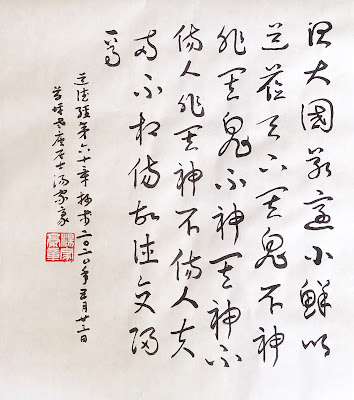 治大國若烹小鮮以
道蒞天下其鬼不神
非其鬼不神其神不
傷人非其神不傷人夫
兩不相傷故德交歸
焉
道德經第六十章 二〇二〇年五月廿三日
居士湯家豪